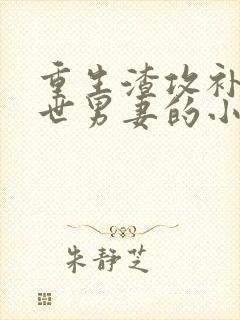 重生渣攻补
世男妻的小
朱静芝